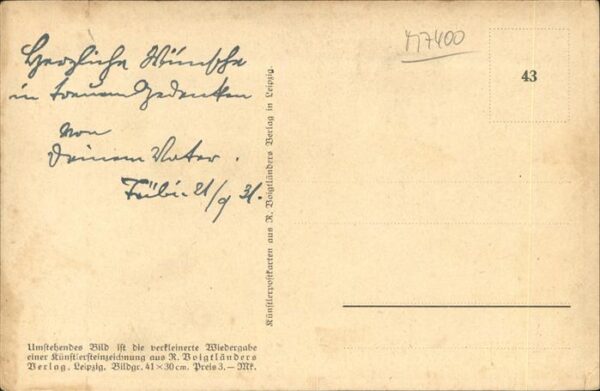 Herzliche Wünsche
in treuem Gedenken
von
Deinem Vater.
21/9 31.
Künstlerpostkarten aus R. Voigtländers Verlag in Leipzig.
477400
43
Umstehendes Bild ist die verkleinerte Wiedergabe
einer Künstlersteinzeichnung aus R. Voigtländers
Verlag, Leipzig. Bildgr. 41×30cm. Preis 3.— Mk.